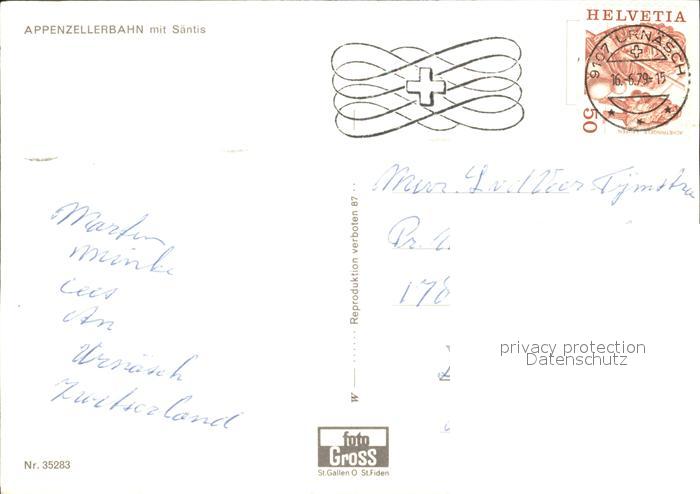 APPENZELLERBAHN mit Säntis
HELVETIA
50
9107 URNÄSCH
16.-6.79-15
Marten
Minke
Cees
An
Urnäsch
Zwitserland
Reproduktion verboten 87
W
Pr.
178
privacy protection
Datenschutz
foto
Gross
St.Gallen O St.Fiden
Nr. 35283